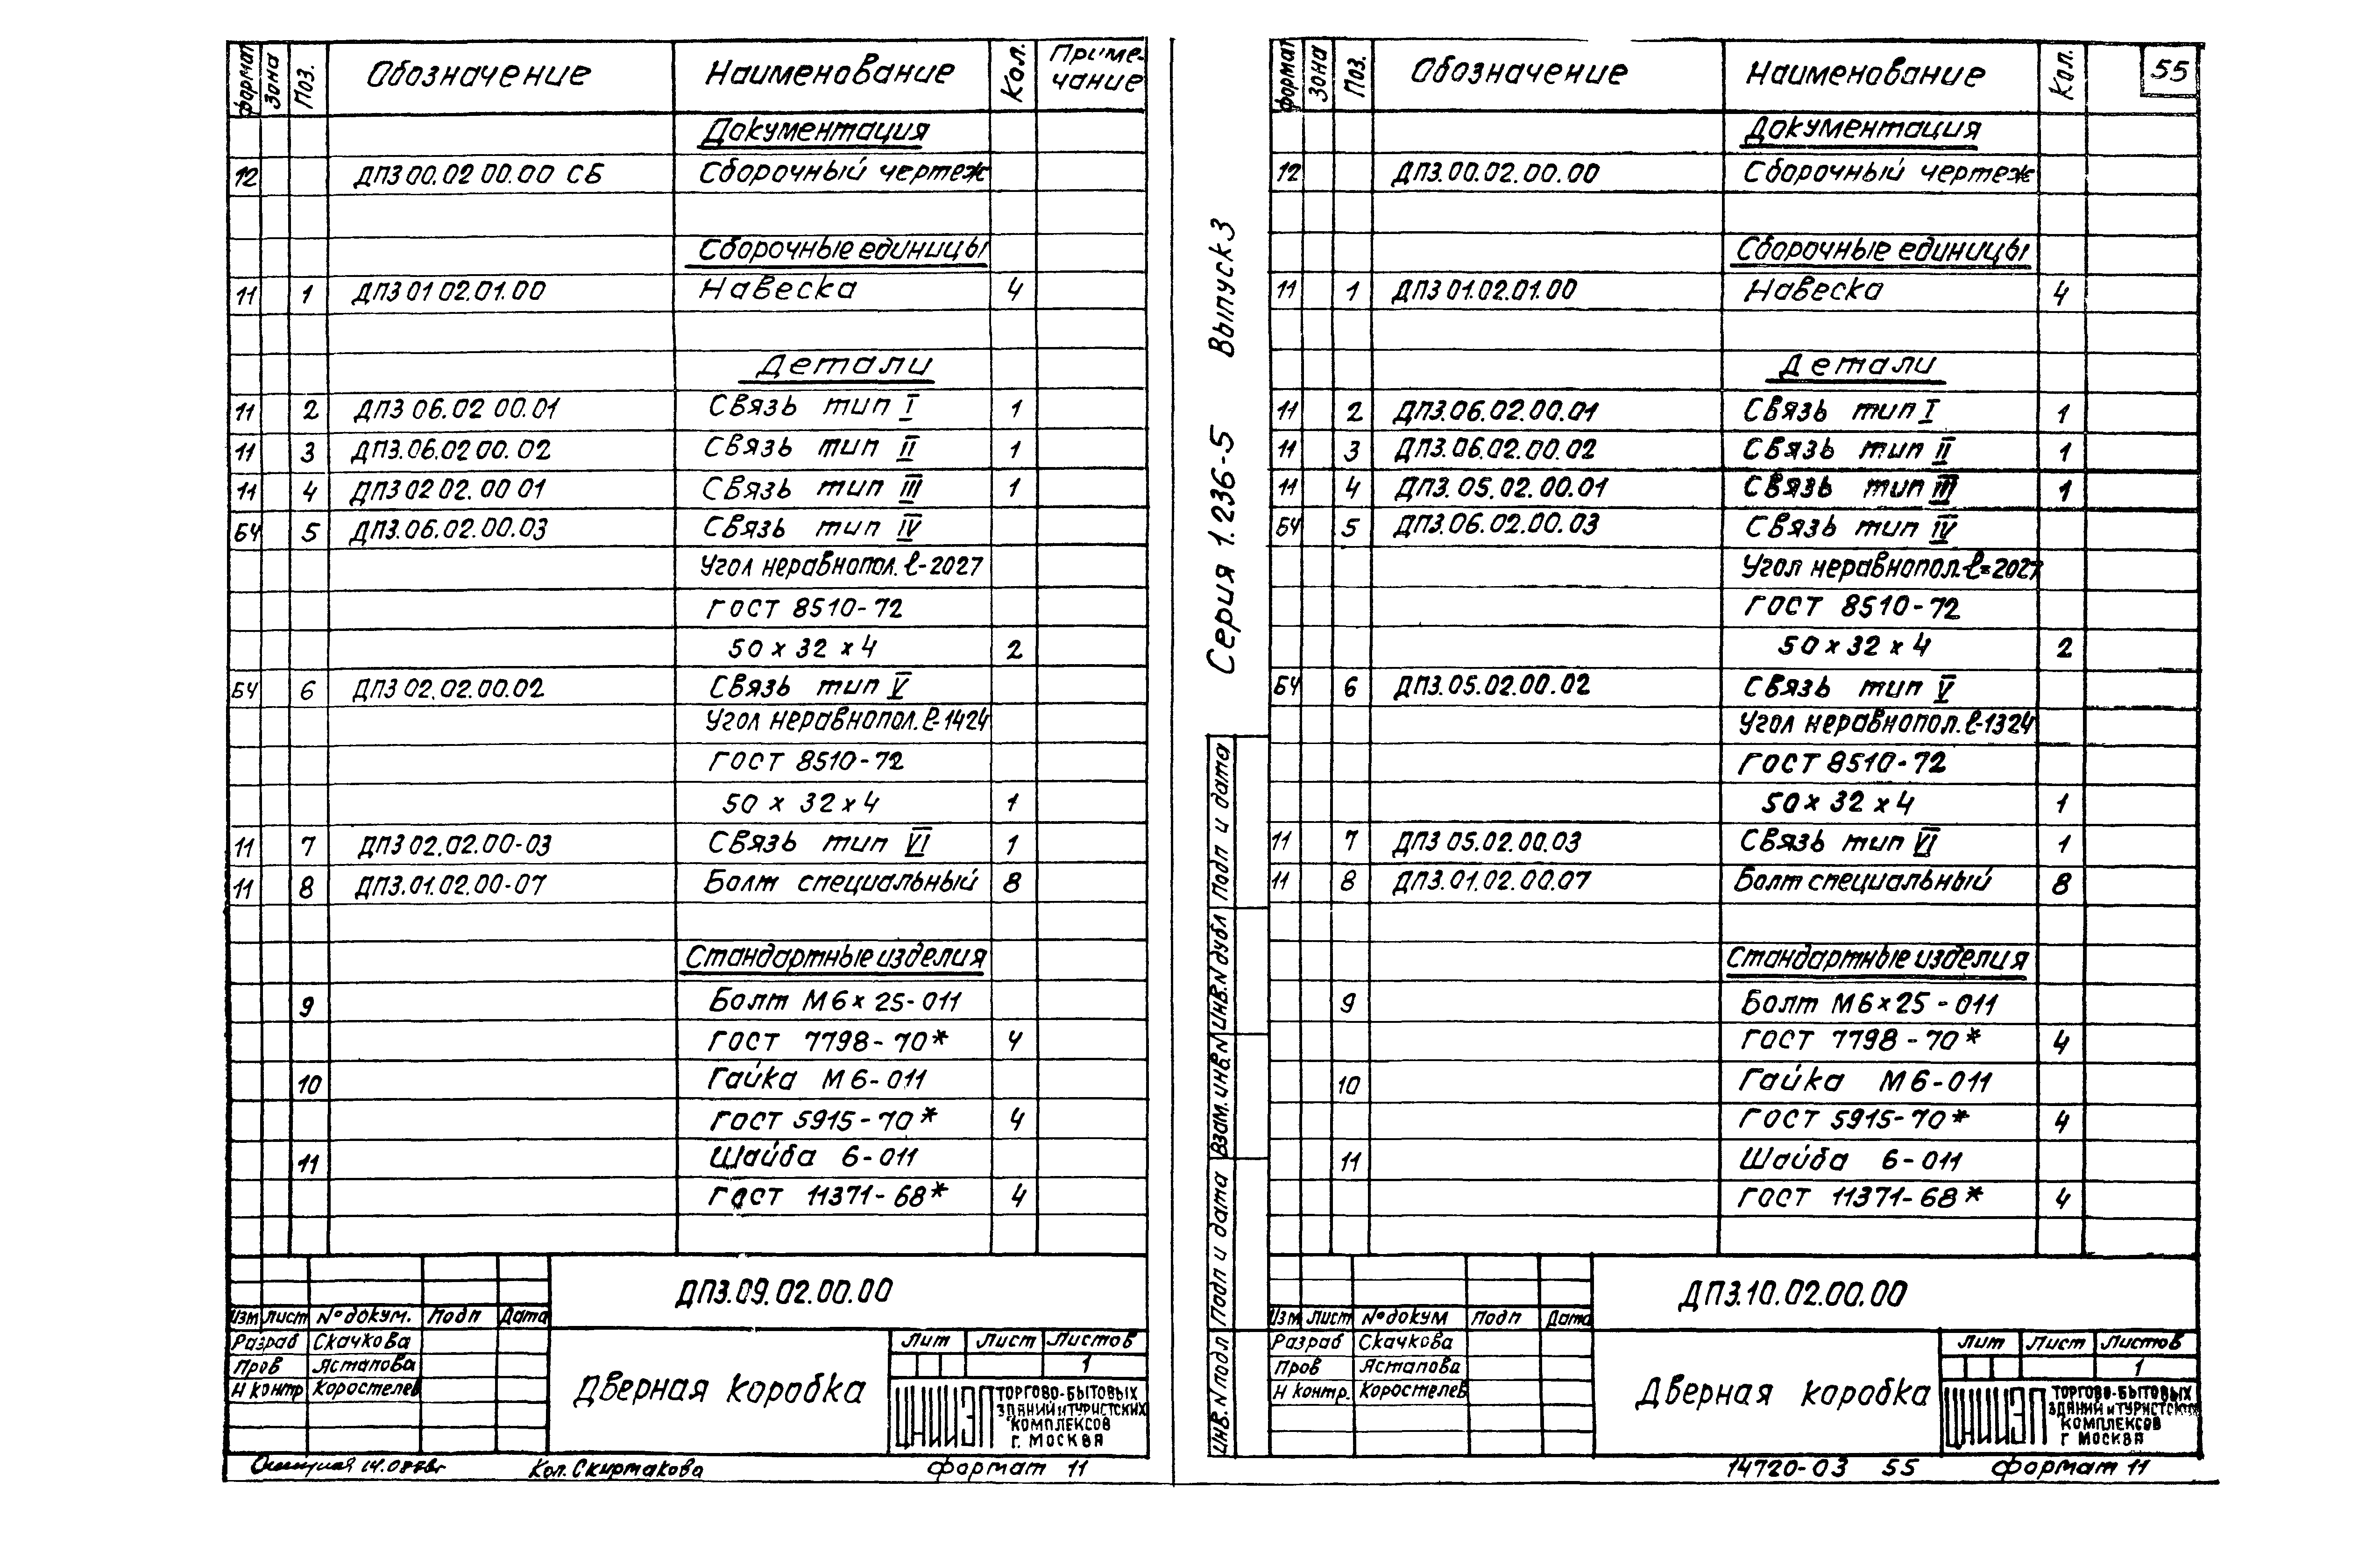 формат Зона Поз. Обозначение Наименование Кол. Приме-
чание
Документация
12 ДПЗ 00.02 00.00 СБ Сборочный чертеж
Сборочные единицы
11 1 ДПЗ 01 02.01.00 Навеска 4
Детали
11 2 ДПЗ 06.02 00.01 Связь тип I 1
11 3 ДПЗ.06.02 00.02 Связь тип II 1
11 4 ДПЗ 02 02.00 01 Связь тип III 1
БЧ 5 ДПЗ.06.02.00.03 Связь тип IV
Угол неравнопол. ℓ-2027
ГОСТ 8510-72
50 х 32 х 4 2
БЧ 6 ДПЗ 02.02.00.02 Связь тип V
Угол неравнопол. ℓ-1424
ГОСТ 8510-72
50 х 32 х 4 1
11 7 ДПЗ 02.02.00-03 Связь тип VI 1
11 8 ДПЗ.01.02.00-07 Болт специальный 8
Стандартные изделия
9 Болт М6х25-011
ГОСТ 7798-70* 4
10 Гайка М6-011
ГОСТ 5915-70* 4
11 Шайба 6-011
ГОСТ 11371-68* 4
ДПЗ.09.02.00.00
Изм Лист № докум. Подп Дата
Разраб Скачкова
Пров Ястапова
Н контр Коростелев
Дверная коробка
Лит Лист Листов
1
ЦНИИЭП ТОРГОВО-БЫТОВЫХ
ЗДАНИЙ и ТУРИСТСКИХ
КОМПЛЕКСОВ
Г. МОСКВА
Кол. Скиртакова формат 11
Серия 1.236-5 Выпуск 3
Подп и дата
ИНВ.N дубл
Взам. ИНВ.N
Подп и дата
ИНВ.N подл
формат Зона Поз. Обозначение Наименование Кол. 55
Документация
12 ДПЗ.00.02.00.00 Сборочный чертеж
Сборочные единицы
11 1 ДПЗ 01.02.01.00 Навеска 4
Детали
11 2 ДПЗ.06.02.00.01 Связь тип I 1
11 3 ДПЗ.06.02.00.02 Связь тип II 1
11 4 ДПЗ.05.02.00.01 Связь тип III 1
БЧ 5 ДПЗ.06.02.00.03 Связь тип IV
Угол неравнопол. ℓ=2027
ГОСТ 8510-72
50 х 32 х 4 2
БЧ 6 ДПЗ.05.02.00.02 Связь тип V
Угол неравнопол. ℓ-1324
ГОСТ 8510-72
50 х 32 х 4 1
11 7 ДПЗ 05.02.00.03 Связь тип VI 1
11 8 ДПЗ.01.02.00.07 Болт специальный 8
Стандартные изделия
9 Болт М6х25-011
ГОСТ 7798-70* 4
10 Гайка М6-011
ГОСТ 5915-70* 4
11 Шайба 6-011
ГОСТ 11371-68* 4
ДПЗ.10.02.00.00
Изм Лист № докум Подп Дата
Разраб Скачкова
Пров Ястапова
Н контр. Коростелев
Дверная коробка
Лит Лист Листов
1
ЦНИИЭП ТОРГОВО-БЫТОВЫХ
ЗДАНИЙ и ТУРИСТСКИХ
КОМПЛЕКСОВ
Г МОСКВА
14720-03 55 формат 11